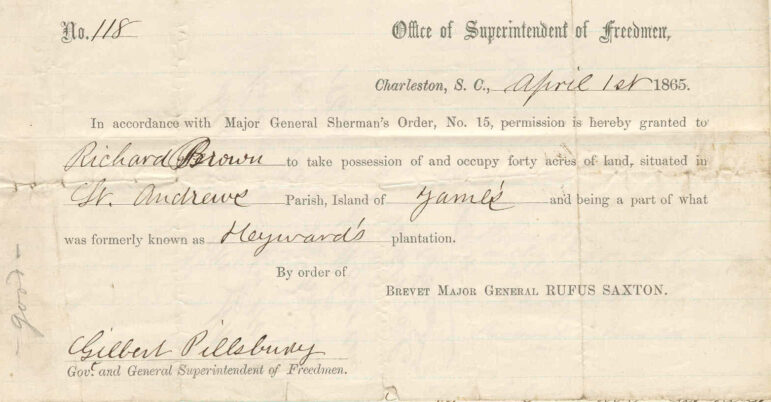 No. 118
Office of Superintendent of Freedmen,
Charleston, S. C., April 1st 1865.
In accordance with Major General Sherman's Order, No. 15, permission is hereby granted to
Richard Brown to take possession of and occupy forty acres of land, situated in
St. Andrews Parish, Island of James and being a part of what
was formerly known as Heyward's plantation.
By order of
Brevet Major General RUFUS SAXTON.
good
Gilbert Pillsbury
Gov't and General Superintendent of Freedmen.